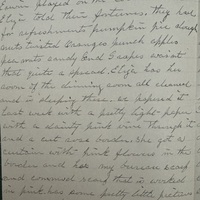 played on the
Elyi told their fortunes, they had
for refreshments pumpkin pie dough
nuts twisted Oranges punch apples
pea nuts candy and Grapes wasnt
that quite a spread. Elyi has her
room off the dinning room all cleaned
and is sleeping there. we papered it
last week with a pretty light paper
with a dainty pink vine through it
and a cut rose border. she got a
curtain with pink flowers in the
border and has my bureau scarf
and commode scarf that is worked
in pink has some pretty little pictures